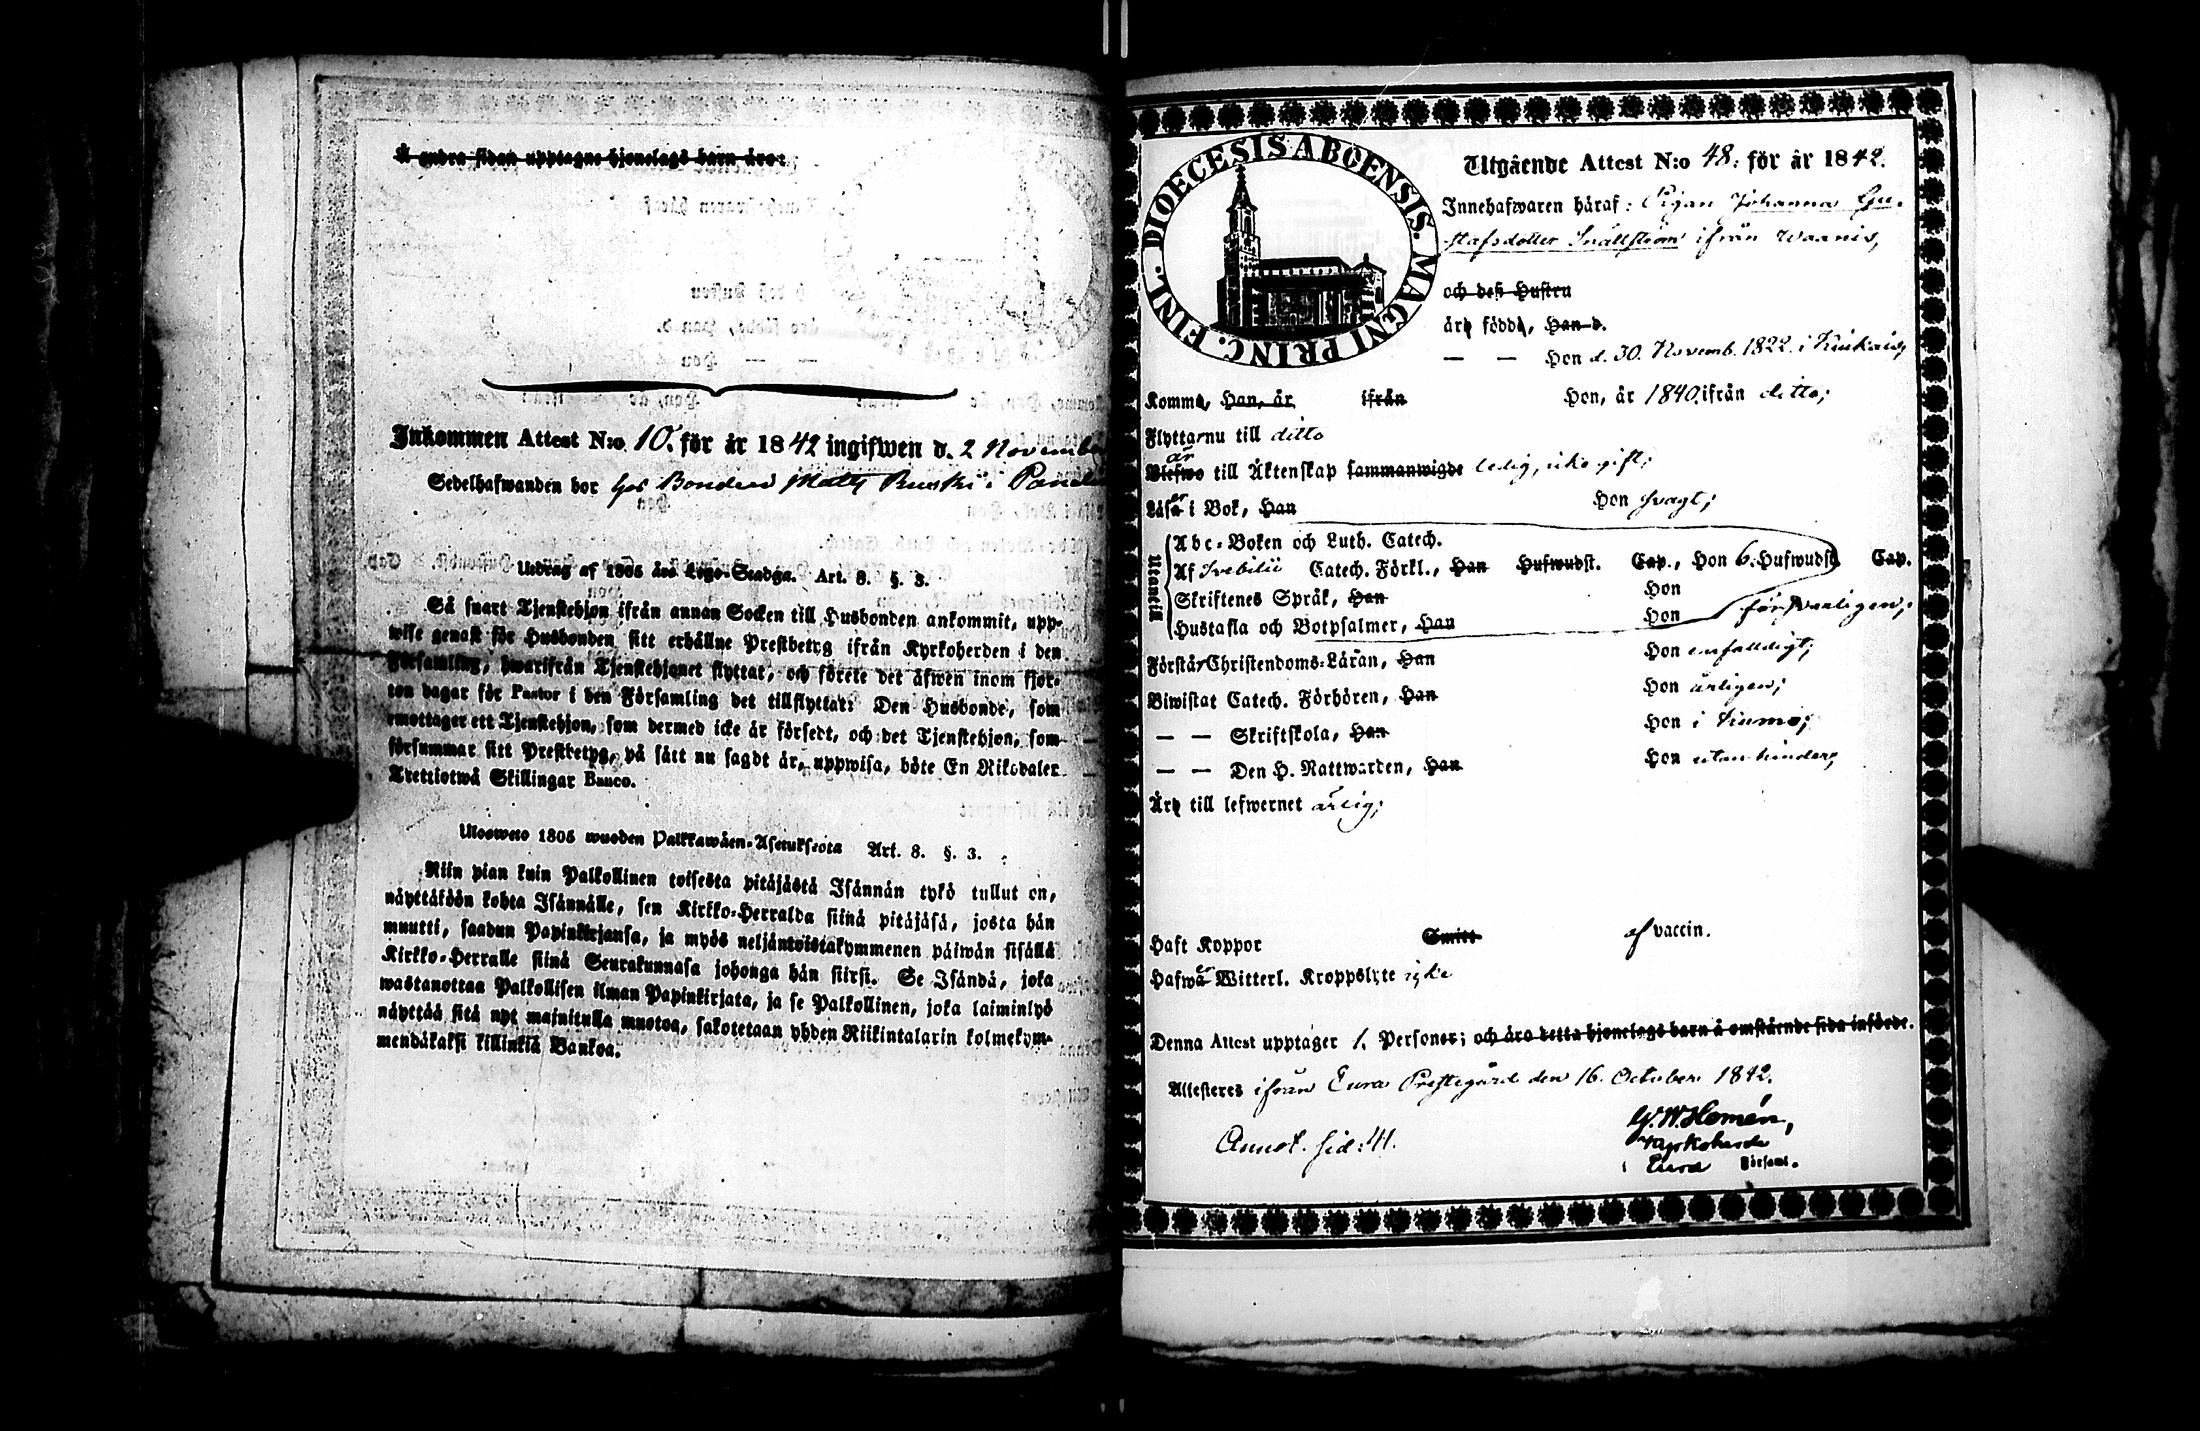 Å andra sidan upptagne hjonelags barn äro:
Inkommen Attest N:o 10. för år 1842 ingifwen d. 2 November
Sedelhafwanden bor hos Bonden Matts Ruski i
Utdrag af 1805 års Lego-Stadga. Art. 8. §. 3.
Så snart Tjenstehjon ifrån annan Socken till Husbonden ankommit, upp-
wise genast för Husbonden sitt erhållne Prestbetyg ifrån Kyrkoherden i den
Församling, hwarifrån Tjenstehjonet flyttat, och förete det äfwen inom fjor-
ton dagar för Pastor i den Församling det tillflyttat: Den Husbonde, som
emottager ett Tjenstehjon, som dermed icke är försedt, och det Tjenstehjon, som
försummar sitt Prestbetyg, på sätt nu sagdt är, uppwisa, böte En Riksdaler
Trettiotwå Skillingar Banco.
Ulosweto 1805 wuoden Palkkawäen-Asetuksesta Art. 8. §. 3.
Niin pian kuin Palkollinen toisesta pitäjästä Isännän tykö tullut on,
näyttäköön kohta Isännälle, sen Kirkko-Herralda siinä pitäjäsä, josta hän
muutti, saadun Papinkirjansa, ja myös neljäntoistakymmenen päiwän sisällä
Kirkko-Herralle siinä Seurakunnasa johonga hän siirsi. Se Isändä, joka
wastanottaa Palkollisen ilman Papinkirjata, ja se Palkollinen, joka laiminlyö
näyttää sitä nyt mainitulla muotoa, sakotetaan yhden Riikintalarin kolmekym-
mendäkaksi killinkiä Bankoa.
DIOECESIS ABOENSIS. MAGNI PRINC. FINL.
Utgående Attest N:o 48. för år 1842.
Innehafwaren häraf: Pigan Johanna Gu-
stafsdotter Snällström ifrån Waanis,
och deß Hustru
äro födde, Han d.
— — Hon d. 30. Novemb. 1822. i Kiukais,
Komme, Han, år ifrån Hon, år 1840. ifrån ditto;
Flyttar nu till ditto
är
Blefwo till Äktenskap sammanwigde ledig, icke gift;
Läsa i Bok, Han Hon svagt;
Utantill
Abc-Boken och Luth. Catech.
Af Svebilii Catech. Förkl., Han Hufwudst. Cap., Hon 6. Hufwudst. Cap.
Skriftenes Språk, Han Hon
Hustafla och Botpsalmer, Han Hon försvarligen;
Förstår Christendoms-Läran, Han Hon enfaldigt;
Biwistat Catech. Förhören, Han Hon årligen;
— — Skriftskola, Han Hon i Kiumo;
— — Den H. Nattwarden, Han Hon utan hinder;
Äro till lefwernet ärlig;
Haft Koppor Smitt af vaccin.
Hafwa Witterl. Kroppslyte icke
Denna Attest upptager 1. Personer; och äro detta hjonelags barn å omstående sida införde.
Attesteres ifrån Eura Prestegård den 16. October 1842.
G. W. Homén,
Annot. sid: 41. Kyrkoherde
i Eura Församl.